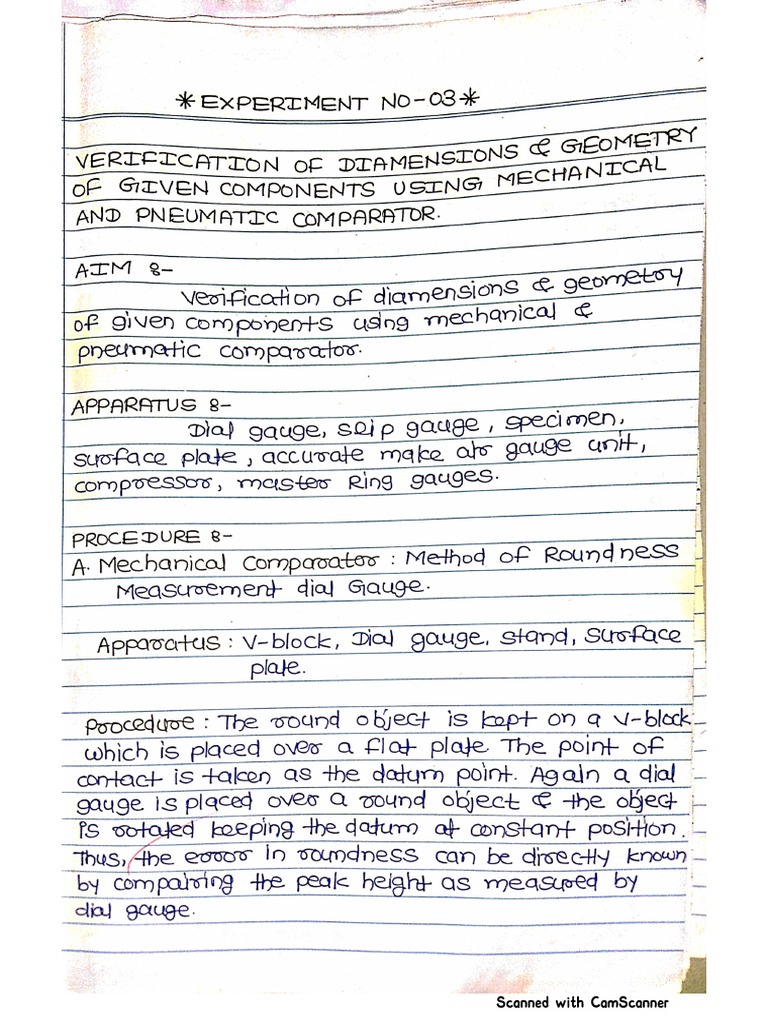 *EXPERIMENT NO-03*
VERIFICATION OF DIAMENSIONS & GEOMETRY
OF GIVEN COMPONENTS USING MECHANICAL
AND PNEUMATIC COMPARATOR.
AIM :-
Verification of diamensions & geometory
of given components using mechanical &
pneumatic comparator.
APPARATUS :-
Dial gauge, slip gauge, specimen,
surface plate, accurate make air gauge unit,
compressor, master Ring gauges.
PROCEDURE :-
A. Mechanical Comparator : Method of Roundness
Measurement dial Gauge.
Apparatus : V-block, Dial gauge, stand, Surface
plate.
Procedure : The round object is kept on a V-block
which is placed over a flat plate. The point of
contact is taken as the datum point. Again a dial
gauge is placed over a round object & the object
is rotated keeping the datum at constant position.
Thus, the error in roundness can be directly known
by compairing the peak height as measured by
dial gauge.
Scanned with CamScanner